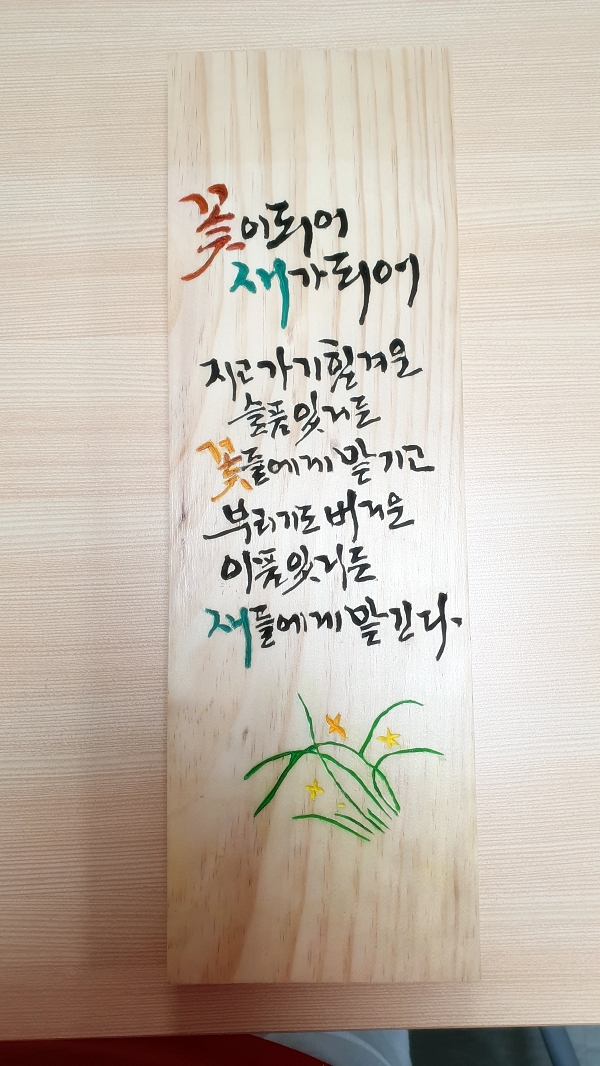 꽃이되어
새가되어
지고가기힘겨운
슬픔있거든
꽃들에게맡기고
부리기도버거운
아픔있거든
새들에게맡긴다.